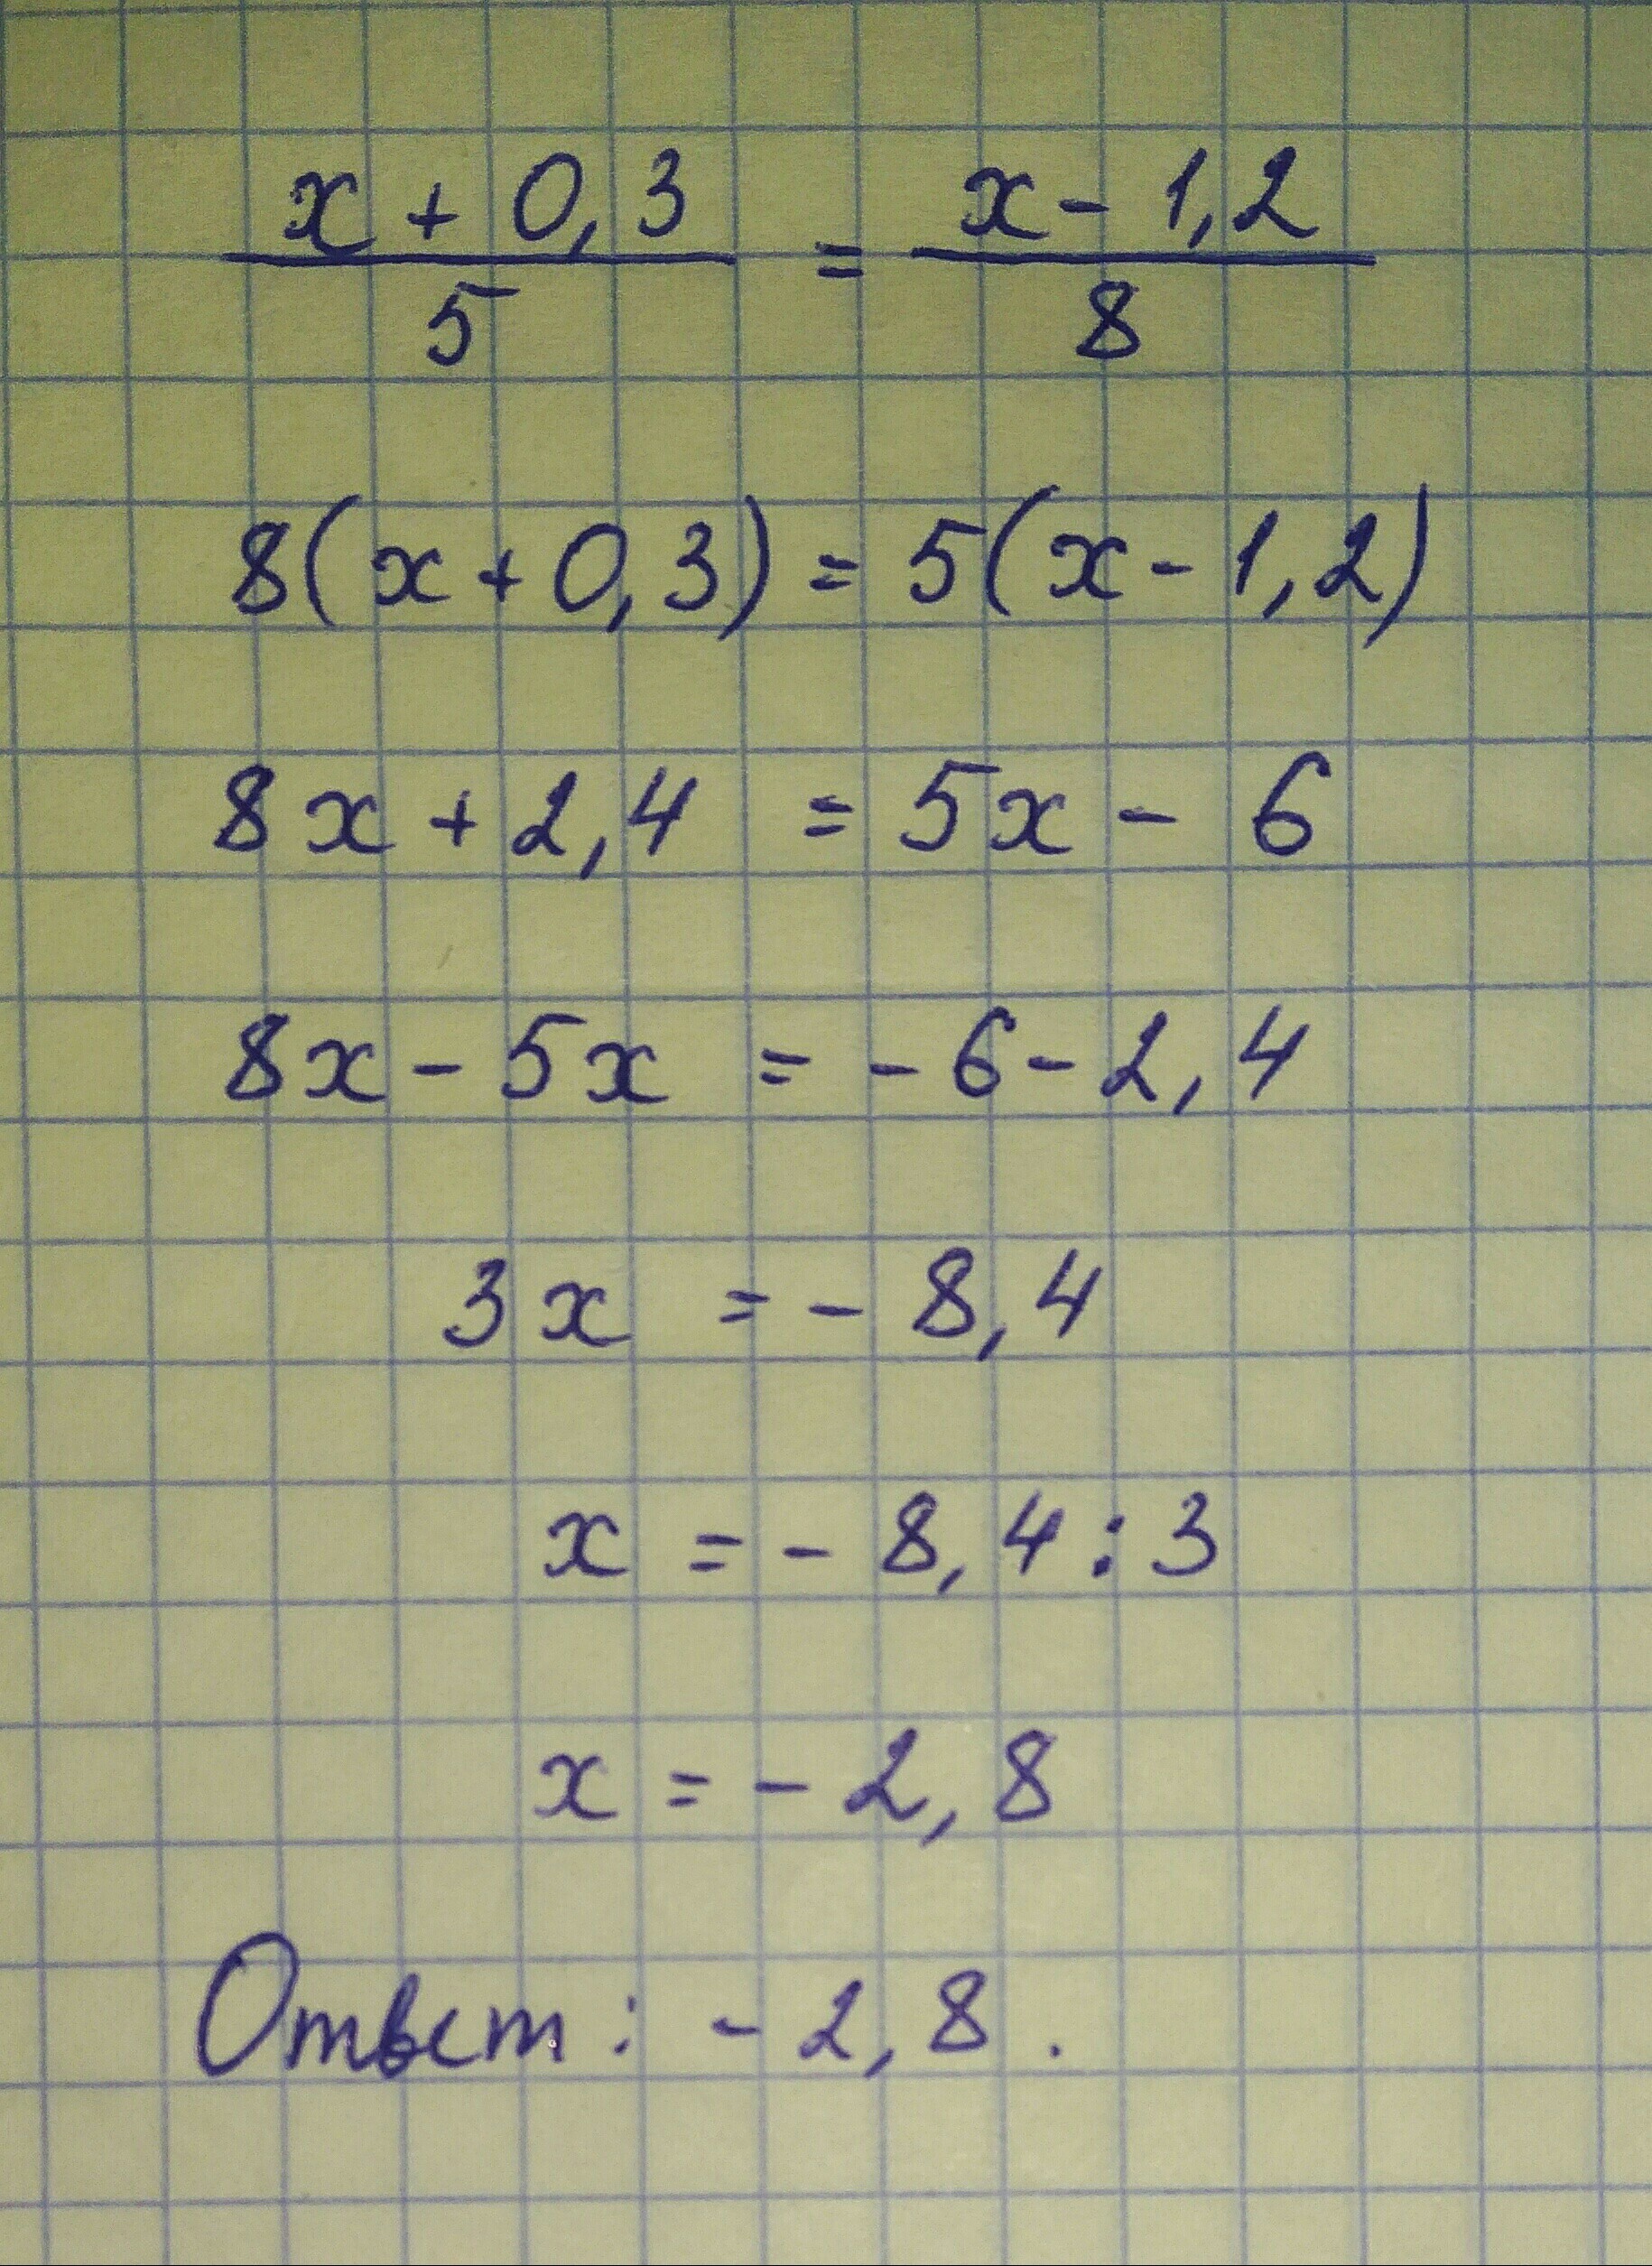 x + 0,3 / 5 = x - 1,2 / 8
8(x + 0,3) = 5(x - 1,2)
8x + 2,4 = 5x - 6
8x - 5x = - 6 - 2,4
3x = - 8,4
x = - 8,4 : 3
x = - 2,8
Ответ: - 2,8.